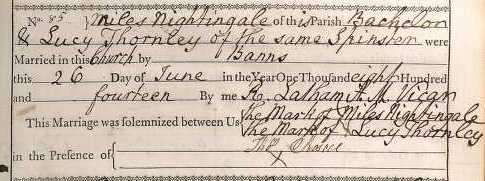 No. 85 } Miles Nightingale of this Parish Bachelor
& Lucy Thornley of the same Spinster were
Married in this Church by Banns
this 26 Day of June in the Year One Thousand eight Hundred
and fourteen By me R. Latham A. M. Vicar
This Marriage was solemnized between Us The Mark of Miles Nightingale
The Mark of Lucy Thornley
in the Presence of
X